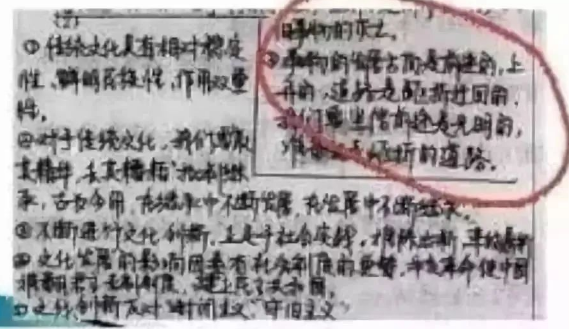 ①传统文化具有相对稳定
性、鲜明民族性、作用双重
性。
②对于传统文化，我们要取
其精华，去其糟粕，批判继
承，古为今用，在继承中不断发展，在发展中不断继承。
③不断进行文化创新，立足于社会实践，推陈出新，革故鼎新
④文化发展的影响因素有社会制度的更替，
⑤文化创新反对"封闭主义""守旧主义"
旧事物的灭亡。
事物的发展方向是前进的，上
升的，道路是曲折迂回的，
我们要坚信前途是光明的，
曲折的道路。